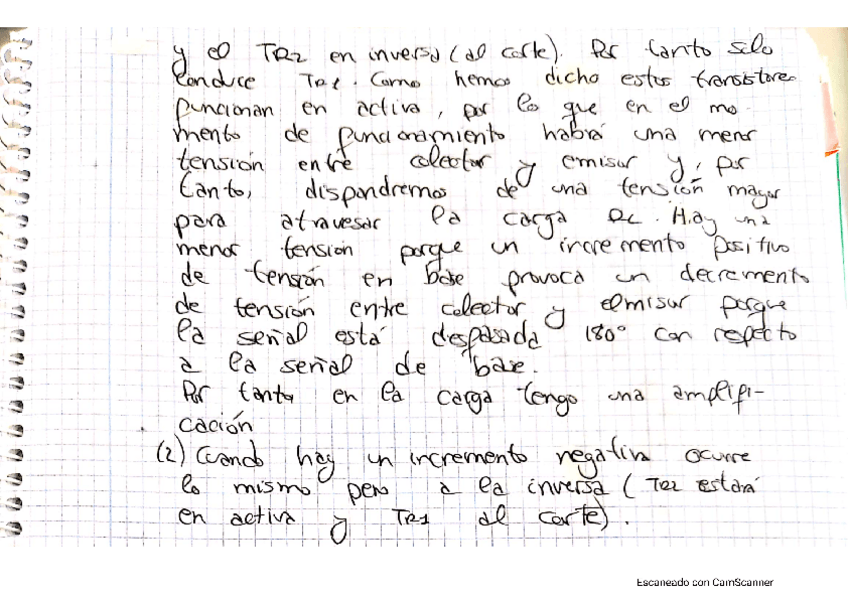 y el TR2 en inversa (al corte). Por tanto solo
conduce TR1. Como hemos dicho estos transistores
funcionan en activa, por lo que en el mo
mento de funcionamiento habrá una menor
tensión entre colector y emisor y, por
tanto, dispondremos de una tensión mayor
para atravesar la carga RL. Hay una
menor tension porque un incremento positivo
de tensión en base provoca un decremento
de tensión entre colector y elmisor porque
la señal está desfasada 180° con respecto
a la señal de base.
Por tanto en la carga tengo una amplifi-
cación
(2) Cuando hay un incremento negativo ocurre
lo mismo pero a la inversa (TR2 estará
en activa y TR1 al corte).
Escaneado con CamScanner